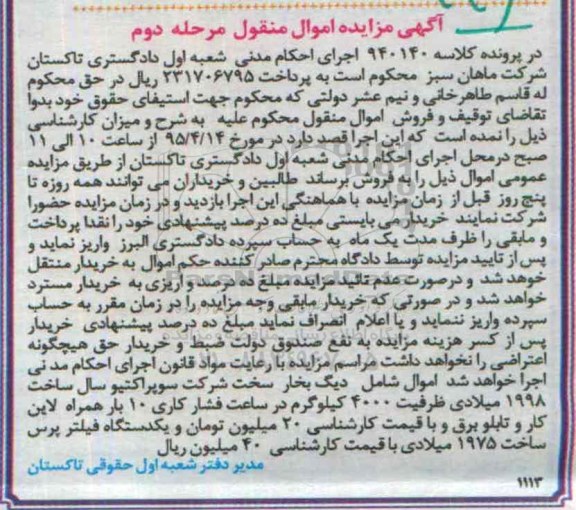 آگهی مزایده اموال منقول مرحله دوم
در پرونده کلاسه ۹۴۰۱۴۰ اجرای احکام مدنی شعبه اول دادگستری تاکستان
شرکت ماهان سبز محکوم است به پرداخت ۲۳۱۷۰۶۷۹۵ ریال در حق محکوم
له قاسم طاهرخانی و نیم عشر دولتی که محکوم جهت استیفای حقوق خود بدوا
تقاضای توقیف و فروش اموال منقول محکوم علیه به شرح و میزان کارشناسی
ذیل را نمده است که این اجرا قصد دارد در مورخ ۹۵/۴/۱۴ از ساعت ۱۰ الی ۱۱
صبح درمحل اجرای احکام مدنی شعبه اول دادگستری تاکستان از طریق مزایده
عمومی اموال ذیل را به فروش برساند طالبین و خریداران می توانند همه روزه تا
پنج روز قبل از زمان مزایده با هماهنگی این اجرا بازدید و در زمان مزایده حضورا
شرکت نمایند خریدار می بایستی مبلغ ده درصد پیشنهادی خود را نقدا پرداخت
و مابقی را ظرف مدت یک ماه به حساب سپرده دادگستری البرز واریز نماید و
پس از تایید مزایده توسط دادگاه محترم صادر کننده حکم اموال به خریدار منتقل
خواهد شد و درصورت عدم تائید مزایده مبلغ ده درصد واریزی به خریدار مسترد
خواهد شد و در صورتی که خریدار مابقی وجه مزایده را در زمان مقرر به حساب
سپرده واریز ننماید و یا اعلام انصراف نماید مبلغ ده درصد پیشنهادی خریدار
پس از کسر هزینه مزایده به نفع صندوق دولت ضبط و خریدار حق هیچگونه
اعتراضی را نخواهد داشت مراسم مزایده با رعایت مواد قانون اجرای احکام مدنی
اجرا خواهد شد اموال شامل دیگ بخار سخت شرکت سوپراکتیو سال ساخت
۱۹۹۸ میلادی ظرفیت ۴۰۰۰ کیلوگرم در ساعت فشار کاری ۱۰ بار همراه لاین
کار و تابلو برق و با قیمت کارشناسی ۲۰ میلیون تومان و یکدستگاه فیلتر پرس
ساخت ۱۹۷۵ میلادی با قیمت کارشناسی ۴۰ میلیون ریال
مدیر دفتر شعبه اول حقوقی تاکستان
۱۱۱۳